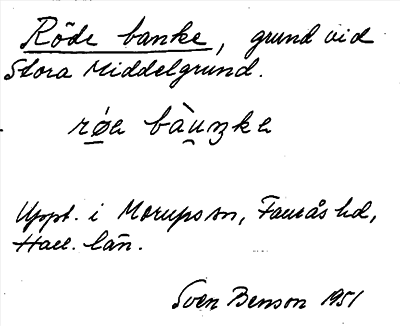 Röde banke, grund vid
Stora Middelgrund.
røe bàunke
Uppt. i Morups sn, Faurås hd,
Hall. län.
Sven Benson 1951